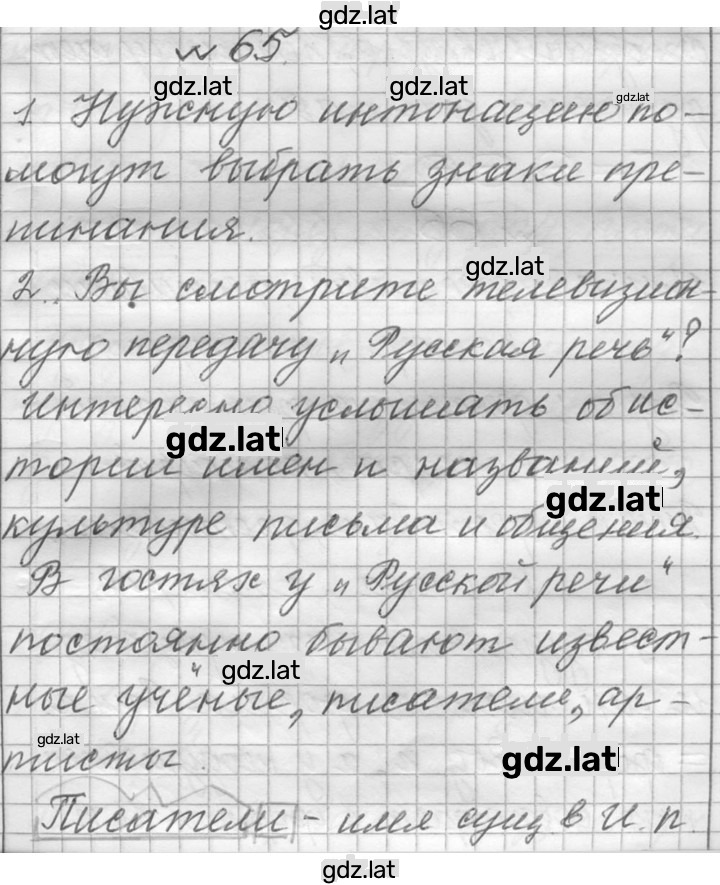 gdz.lat
№ 65.
gdz.lat gdz.lat gdz.lat
1. Нужную интонацию по-
могут выбрать знаки пре-
пинания.
gdz.lat
2. Вы смотрите телевизион-
ную передачу „Русская речь“?
Интересно услышать об ис-
gdz.lat
тории имён и названий,
gdz.lat
культуре письма и общения.
В гостях у „Русской речи“
постоянно бывают извест-
gdz.lat
ные учёные, писатели, ар-
gdz.lat
тисты.
gdz.lat
Писатели - имя сущ. в И. п.
gdz.lat